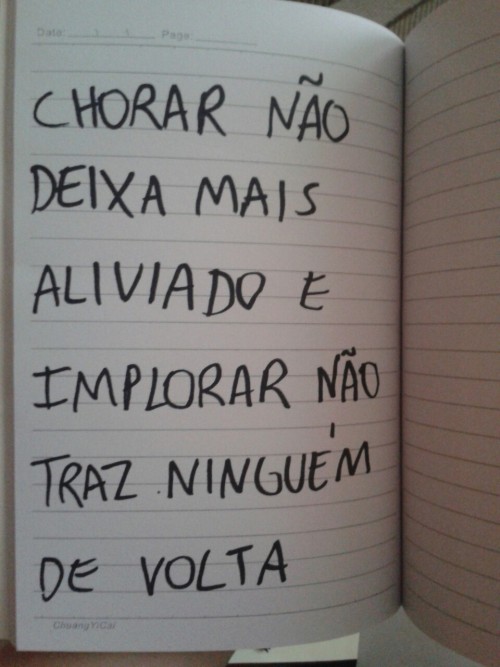 Date: / / Page:
CHORAR NÃO
DEIXA MAIS
ALIVIADO E
IMPLORAR NÃO
TRAZ NINGUÉM
DE VOLTA
ChuangYiCai